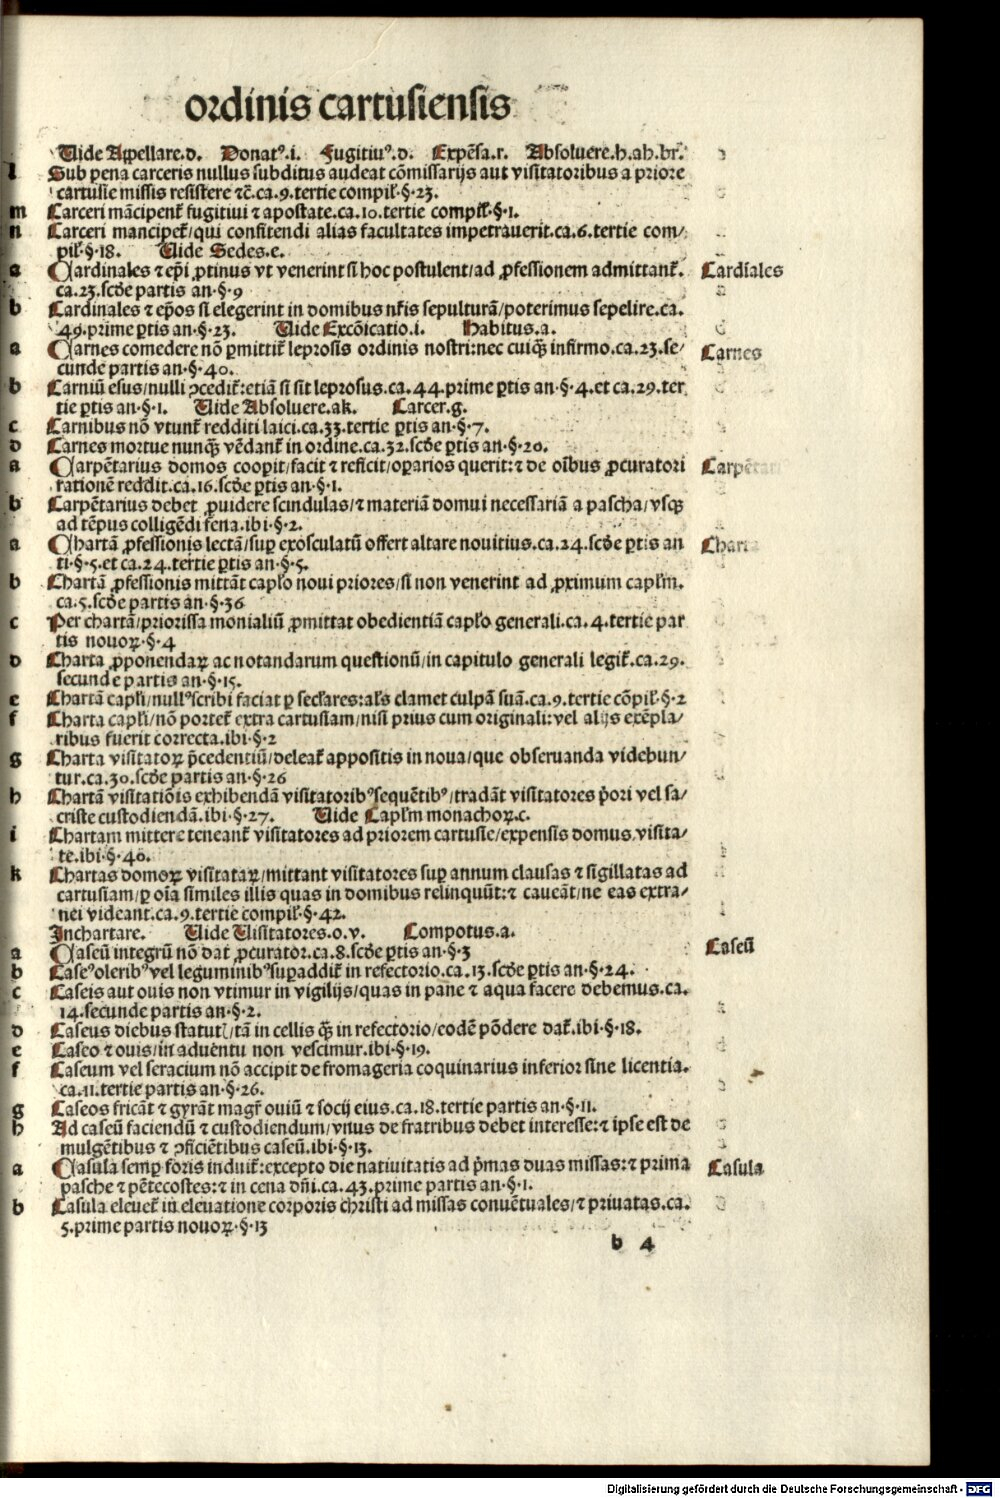 ordinis cartusiensis
Uide Appellare.d. Donatꝰ.i. Fugitiuꝰ.d. Expēsa.r. Absoluere.h.ah.br.
l Sub pena carceris nullus subditus audeat cōmissarijs aut visitatoribus a priore
cartusie missis resistere ⁊c̄.ca.9.tertie compil̛.§.23.
m Carceri mācipent̛ fugitiui ⁊ apostate.ca.10.tertie compil̛.§.1.
n Carceri mancipet̛/qui confitendi alias facultates impetrauerit.ca.6.tertie com/
pil̛.§.18. Uide Sedes.e.
a Cardinales ⁊ ep̄i ꝓtinus vt venerint si hoc postulent/ad ꝓfessionem admittant̛. Cardīales
ca.23.scd̄e partis an.§.9
b Cardinales ⁊ ep̄os si elegerint in domibus nr̄is sepulturā/poterimus sepelire.ca.
49.prime ꝑtis an.§.23. Uide Excōicatio.i. Habitus.a.
a Carnes comedere nō ꝑmittit̛ leprosis ordinis nostri:nec cuiqꝫ infirmo.ca.23.se/ Carnes
cunde partis an.§.40.
b Carniū esus/nulli ꝯcedit̛:etiā si sit leprosus.ca.44.prime ꝑtis an.§.4.et ca.29.ter
tie ꝑtis an.§.1. Uide Absoluere.ak. Carcer.g.
c Carnibus nō vtunt̛ redditi laici.ca.33.tertie ꝑtis an.§.7.
d Carnes mortue nunqꝫ vēdant̛ in ordine.ca.32.scd̄e ꝑtis an.§.20.
a Carpētarius domos cooꝑit/facit ⁊ reficit/oꝑarios querit:⁊ de oībus ꝓcuratori Carpētari
rationē reddit.ca.16.scd̄e ꝑtis an.§.1.
b Carpētarius debet ꝓuidere scindulas/⁊ materiā domui necessariā a pascha/vsqꝫ
ad tēpus colligēdi fena.ibi.§.2.
a Chartā ꝓfessionis lectā/suꝑ exosculatū offert altare nouitius.ca.24.scd̄e ꝑtis an Charta
ti.§.5.et ca.24.tertie ꝑtis an.§.5.
b Chartā ꝓfessionis mittāt capl̄o noui priores/si non venerint ad ꝓximum capl̄m.
ca.5.scd̄e partis an.§.36
c Per chartā/priorissa monialiū ꝓmittat obedientiā capl̄o generali.ca.4.tertie par
tis nouoꝝ.§.4
d Charta ꝓponendaꝝ ac notandarum questionū/in capitulo generali legit̛.ca.29.
secunde partis an.§.15.
e Chartā capl̄i/nullꝰ scribi faciat ꝑ secl̄ares:al̄s clamet culpā suā.ca.9.tertie cōpil̛.§.2
f Charta capl̄i/nō portet̛ extra cartusiam/nisi prius cum originali:vel alijs exēpla/
ribus fuerit correcta.ibi.§.2
g Charta visitatoꝝ p̄cedentiū/deleat̛ appositis in noua/que obseruanda videbun/
tur.ca.30.scd̄e partis an.§.26
h Chartā visitatiōis exhibendā visitatoribꝰ sequētibꝰ/tradāt visitatores p̄ori vel sa/
criste custodiendā.ibi.§.27. Uide Capl̄m monachoꝝ.c.
i Chartam mittere teneant̛ visitatores ad priorem cartusie/expensis domus visita/
te.ibi.§.40.
k Chartas domoꝝ visitataꝝ/mittant visitatores suꝑ annum clausas ⁊ sigillatas ad
cartusiam/ꝑ oīa similes illis quas in domibus relinquūt:⁊ caueāt/ne eas extra/
nei videant.ca.9.tertie compil̛.§.42.
Inchartare. Uide Uisitatores.o.v. Compotus.a.
a Caseū integrū nō dat ꝓcurator.ca.8.scd̄e ꝑtis an.§.3 Caseū
b Caseꝰ oleribꝰ vel leguminibꝰ suꝑaddit̛ in refectorio.ca.13.scd̄e ꝑtis an.§.24.
c Caseis aut ouis non vtimur in vigilijs/quas in pane ⁊ aqua facere debemus.ca.
14.secunde partis an.§.2.
d Caseus diebus statut̛/tā in cellis qꝫ in refectorio/eodē pōdere dat̛.ibi.§.18.
e Caseo ⁊ ouis/in aduentu non vescimur.ibi.§.19.
f Caseum vel seracium nō accipit de fromageria coquinarius inferior sine licentia.
ca.11.tertie partis an.§.26.
g Caseos fricāt ⁊ gyrāt magr̄ ouiū ⁊ socij eius.ca.18.tertie partis an.§.11.
h Ad caseū faciendū ⁊ custodiendum/vnus de fratribus debet interesse:⁊ ipse est de
mulgētibus ⁊ ꝯficiētibus caseū.ibi.§.13.
a Casula semꝑ foris induit̛:excepto die natiuitatis ad p̄mas duas missas:⁊ prima Casula
pasche ⁊ pētecostes:⁊ in cena dn̄i.ca.43.prime partis an.§.1.
b Casula eleuet̛ in eleuatione corporis christi ad missas conuētuales/⁊ priuatas.ca.
5.prime partis nouoꝝ.§.13
b 4
Digitalisierung gefördert durch die Deutsche Forschungsgemeinschaft - DFG